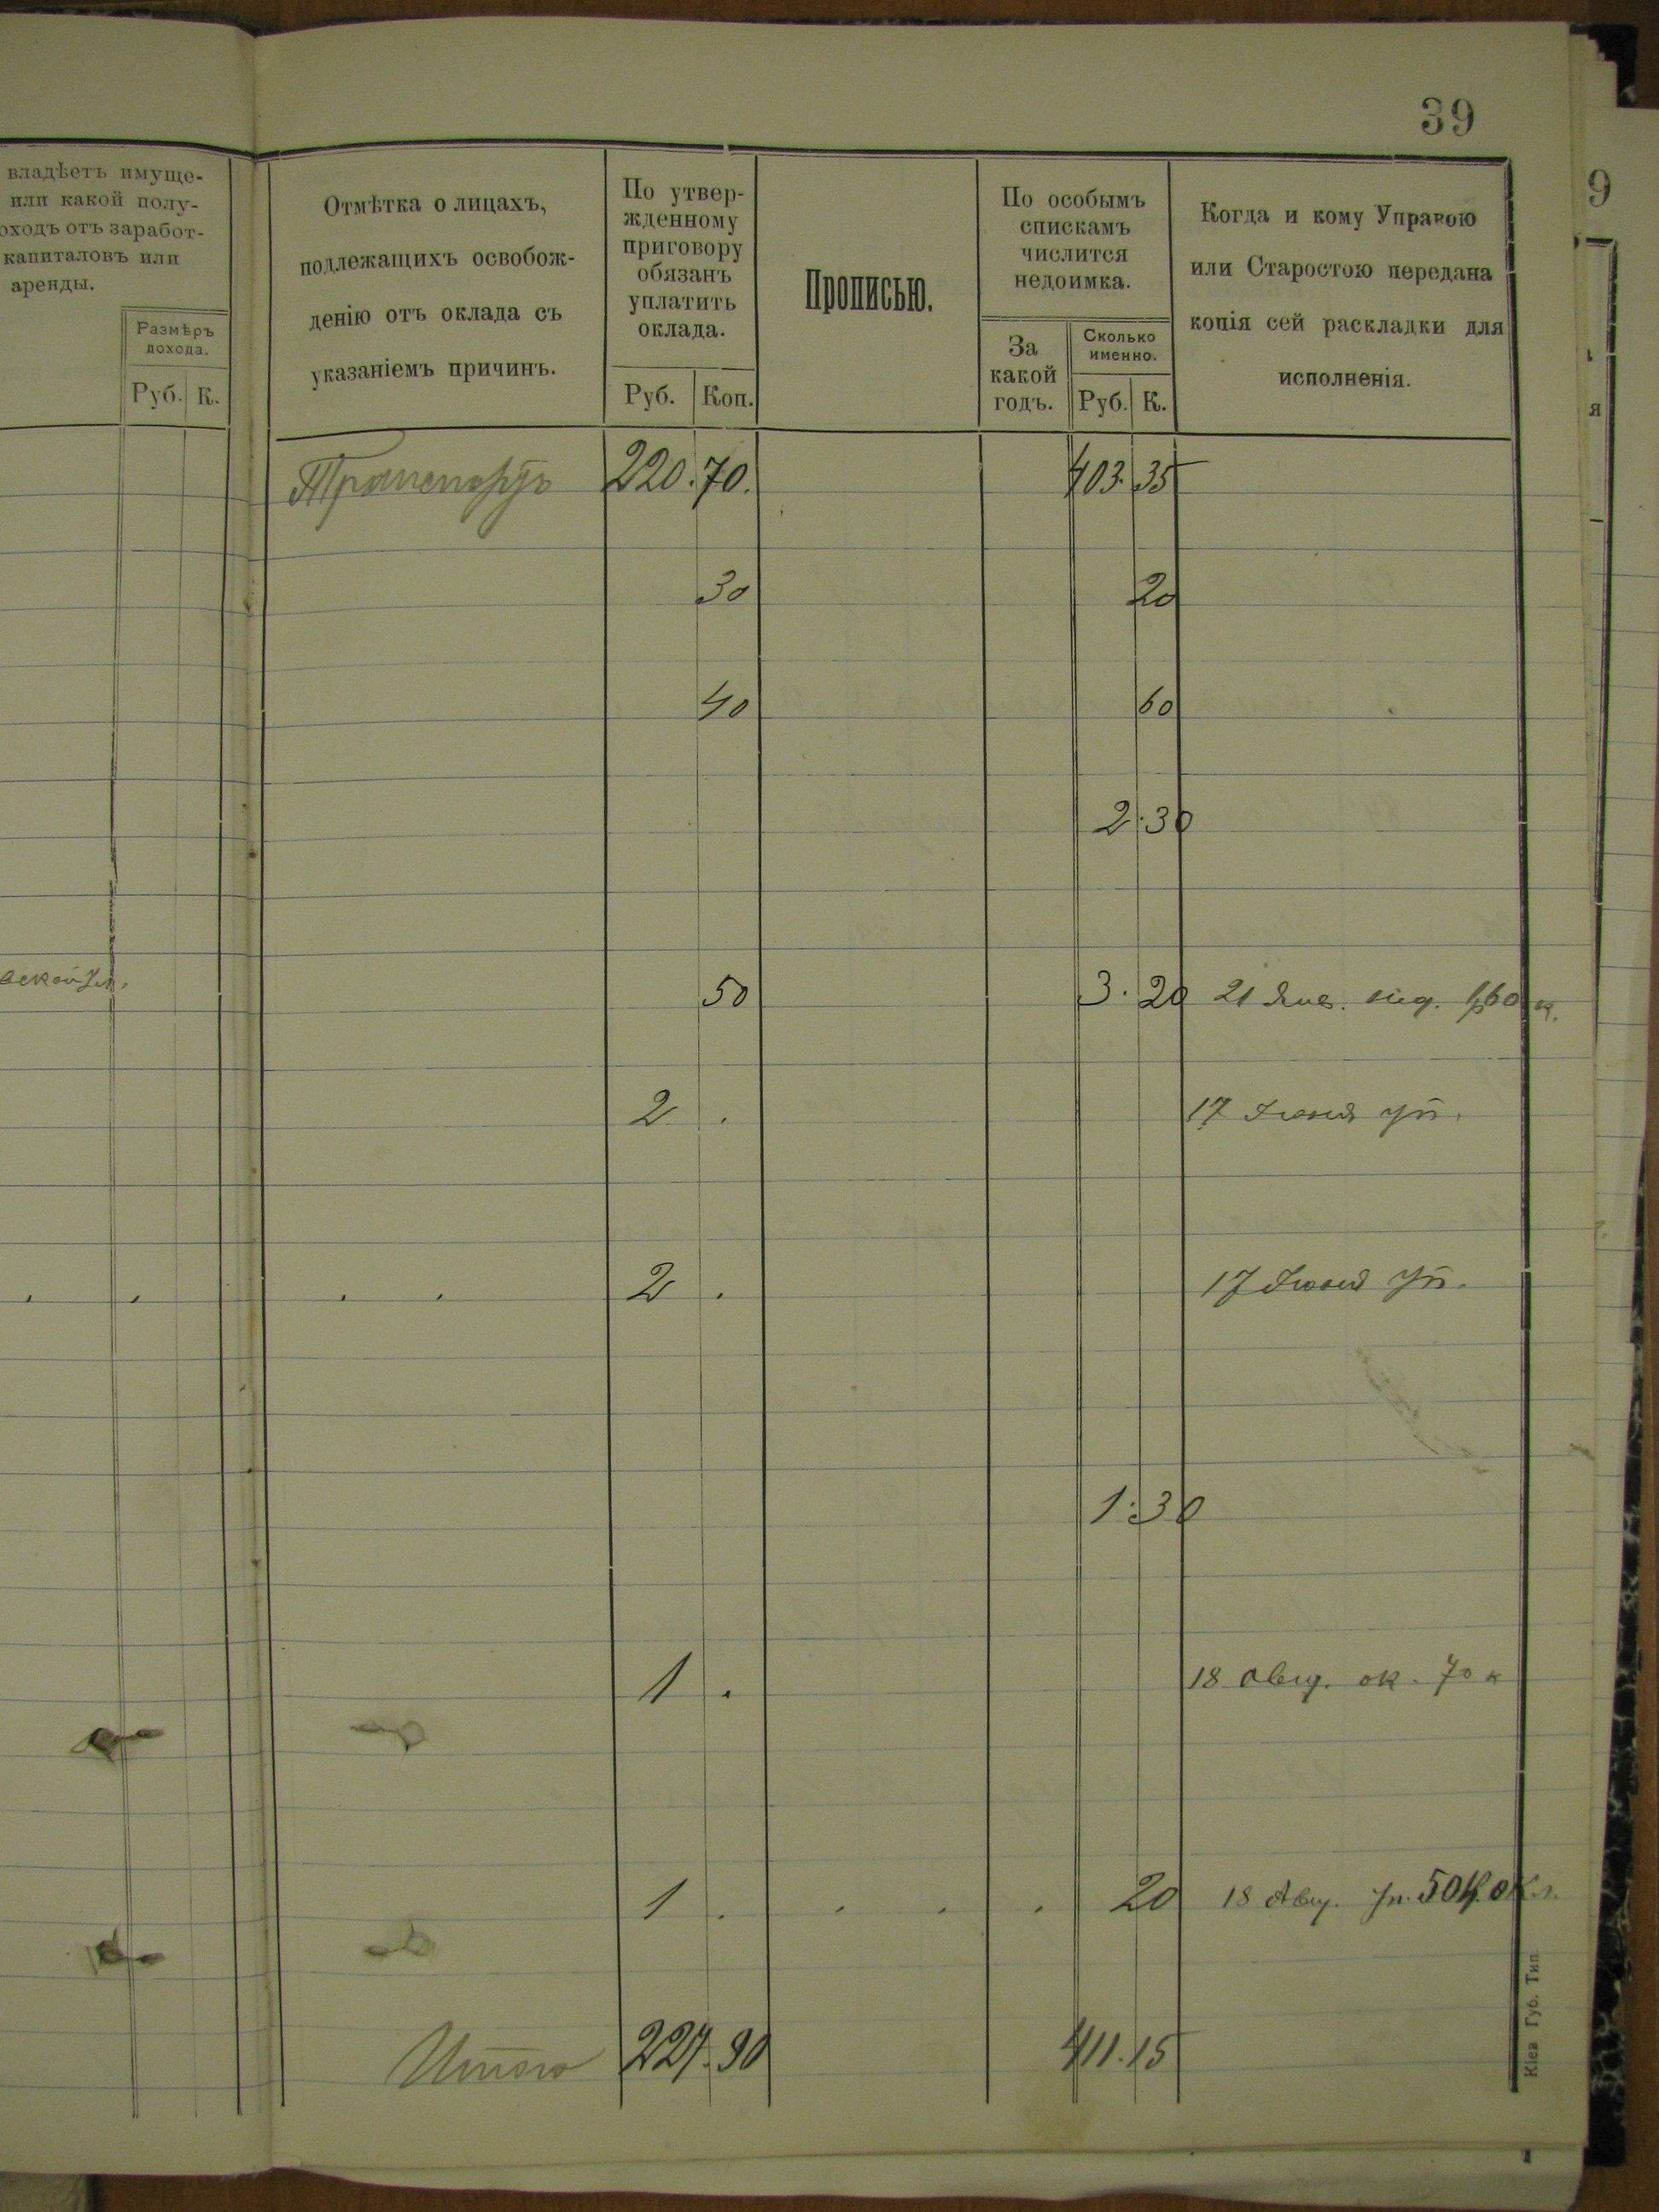 39
владѣетъ имуще-
или какой полу-
оходъ отъ заработ-
капиталовъ или
аренды.
Размѣръ
дохода.
Руб. К.
Отмѣтка о лицахъ,
подлежащихъ освобож-
денію отъ оклада съ
указаніемъ причинъ.
По утвер-
жденному
приговору
обязанъ
уплатить
оклада.
Руб. Коп.
Прописью.
По особымъ
спискамъ
числится
недоимка.
За
какой
годъ.
Сколько
именно.
Руб. К.
Когда и кому Управою
или Старостою передана
копія сей раскладки для
исполненія.
9
я
Транспортъ 220.70. 403.35
30 20
40 60
2.30
50 3.20 21 Янв. 60 к.
2 . 17 Іюня уп.
. . . . 2 . 17 Іюня уп.
1.30
1 . 18 Авг. ок. 70 к
1 . . . . 20 18 Авг. уп. 50 к. окл.
Итого 227.90 411.15
Кіев Губ. Тип